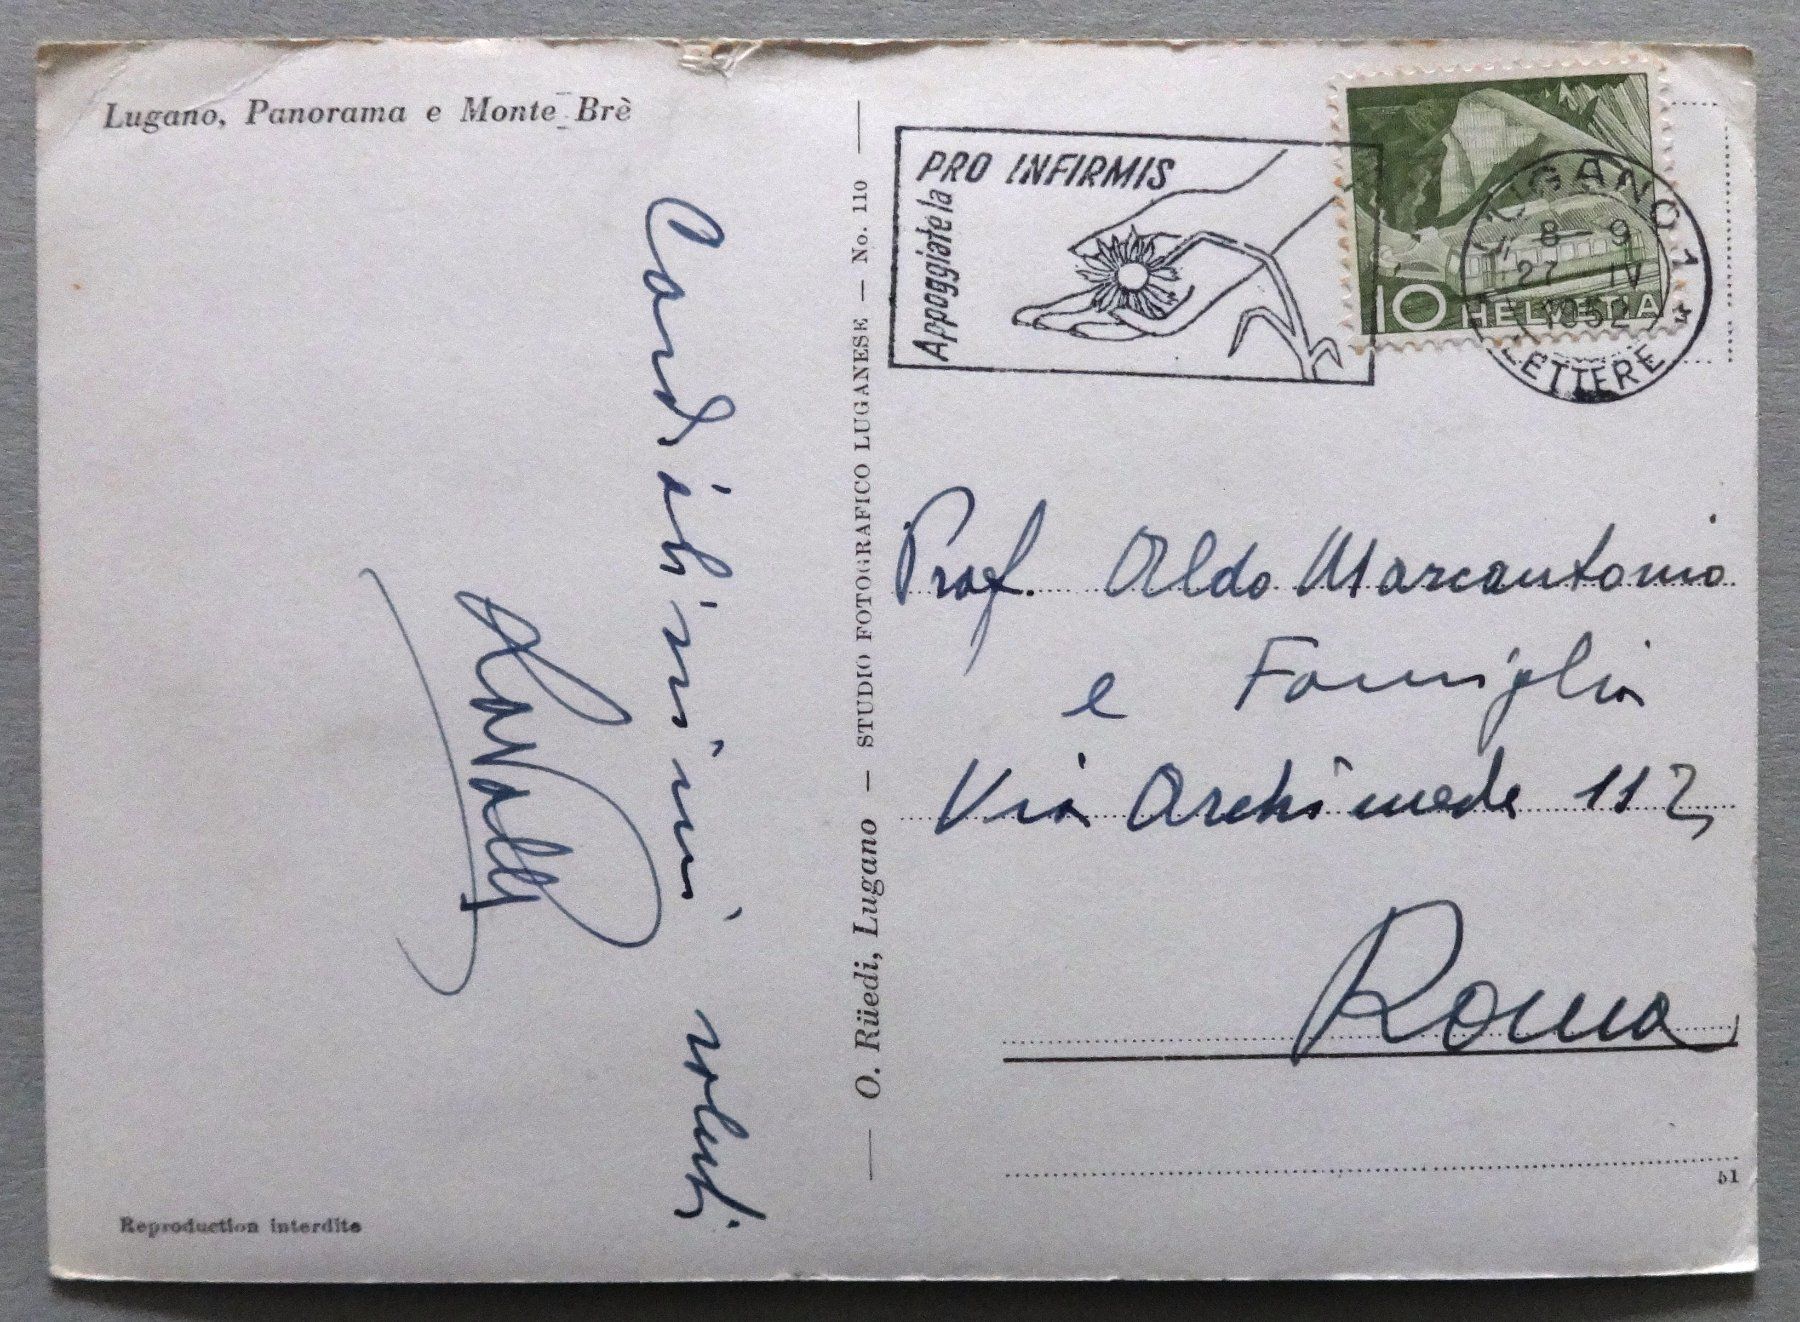 Lugano, Panorama e Monte Brè
Cordialissimi saluti
O. Rüedi, Lugano — STUDIO FOTOGRAFICO LUGANESE — No. 110
PRO INFIRMIS
Appoggiatela
10 HELVETIA
LUGANO 1
8-9
27 IV
1952
LETTERE
Prof. Aldo Marcantonio
e Famiglia
Via Archimede 112
Roma
51
Reproduction interdite